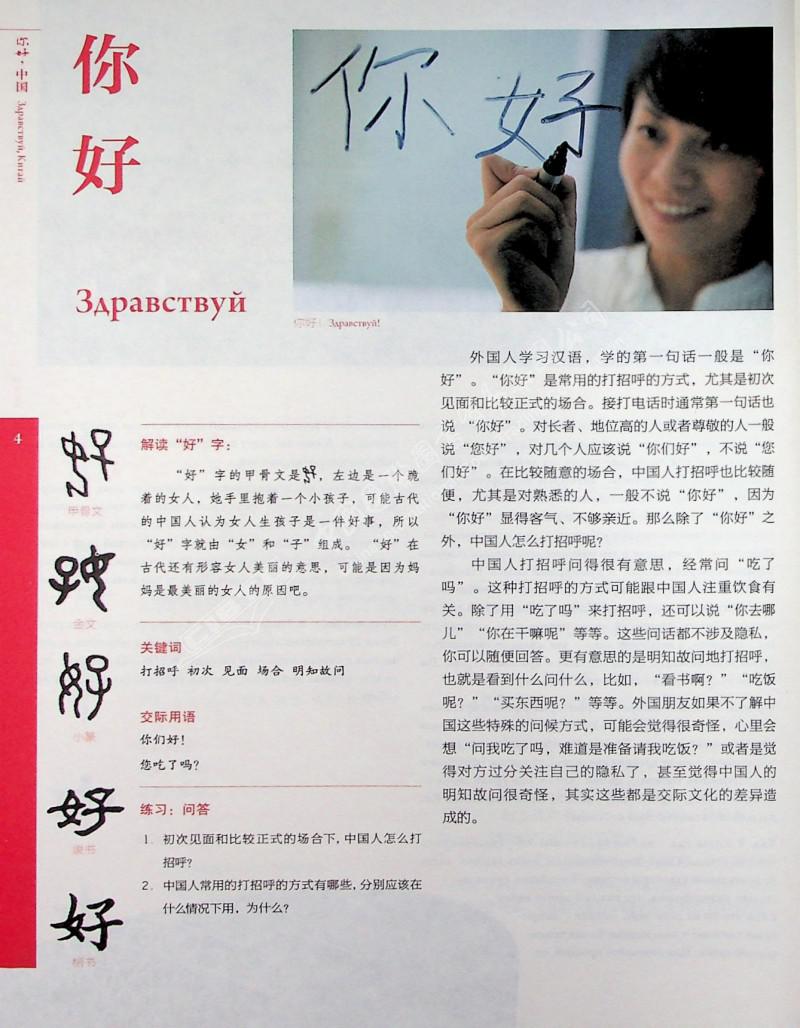 你好·中国 Здравствуй, Китай
你
好
Здравствуй
你好
你好！Здравствуй!
4
甲骨文
金文
小篆
隶书
楷书
解读“好”字：
“好”字的甲骨文是好，左边是一个跪
着的女人，她手里抱着一个小孩子，可能古代
的中国人认为女人生孩子是一件好事，所以
“好”字就由“女”和“子”组成。“好”在
古代还有形容女人美丽的意思，可能是因为妈
妈是最美丽的女人的原因吧。
关键词
打招呼 初次 见面 场合 明知故问
交际用语
你们好！
您吃了吗？
练习：问答
1. 初次见面和比较正式的场合下，中国人怎么打
招呼？
2. 中国人常用的打招呼的方式有哪些，分别应该在
什么情况下用，为什么？
外国人学习汉语，学的第一句话一般是“你
好”。“你好”是常用的打招呼的方式，尤其是初次
见面和比较正式的场合。接打电话时通常第一句话也
说 “你好”。对长者、地位高的人或者尊敬的人一般
说“您好”，对几个人应该说“你们好”，不说“您
们好”。在比较随意的场合，中国人打招呼也比较随
便，尤其是对熟悉的人，一般不说“你好”，因为
“你好”显得客气、不够亲近。那么除了“你好”之
外，中国人怎么打招呼呢？
中国人打招呼问得很有意思，经常问“吃了
吗”。这种打招呼的方式可能跟中国人注重饮食有
关。除了用“吃了吗”来打招呼，还可以说“你去哪
儿”“你在干嘛呢”等等。这些问话都不涉及隐私，
你可以随便回答。更有意思的是明知故问地打招呼，
也就是看到什么问什么，比如，“看书啊？”“吃饭
呢？”“买东西呢？”等等。外国朋友如果不了解中
国这些特殊的问候方式，可能会觉得很奇怪，心里会
想“问我吃了吗，难道是准备请我吃饭？”或者是觉
得对方过分关注自己的隐私了，甚至觉得中国人的
明知故问很奇怪，其实这些都是交际文化的差异造
成的。